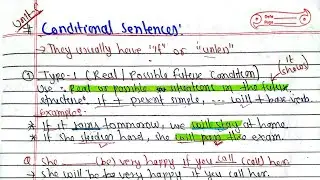 Unit-5
* Conditional Sentences:
Date
Page
→ They usually have "if" or "unless"
it shows
① Type-1 (Real / Possible future Condition)
Use: Real or possible situations in the future.
structure: if + present simple, ... will + base verb.
Examples:
* If it rains tommorow, we will stay at home.
* If She hard, she will pass the exam.
Q She ____ (be) very happy if you call (call) her.
→ She will be very happy if you call her.